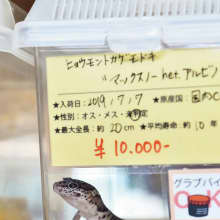 ヒョウモントカゲモドキ
マックスノー het. アルビノ
★入荷日：2019/7/7 ★原産国：国内CB
★性別：オス・メス・未判定
★最大全長：約20cm ★平均寿命：約10年
￥10.000-
グラブパイ